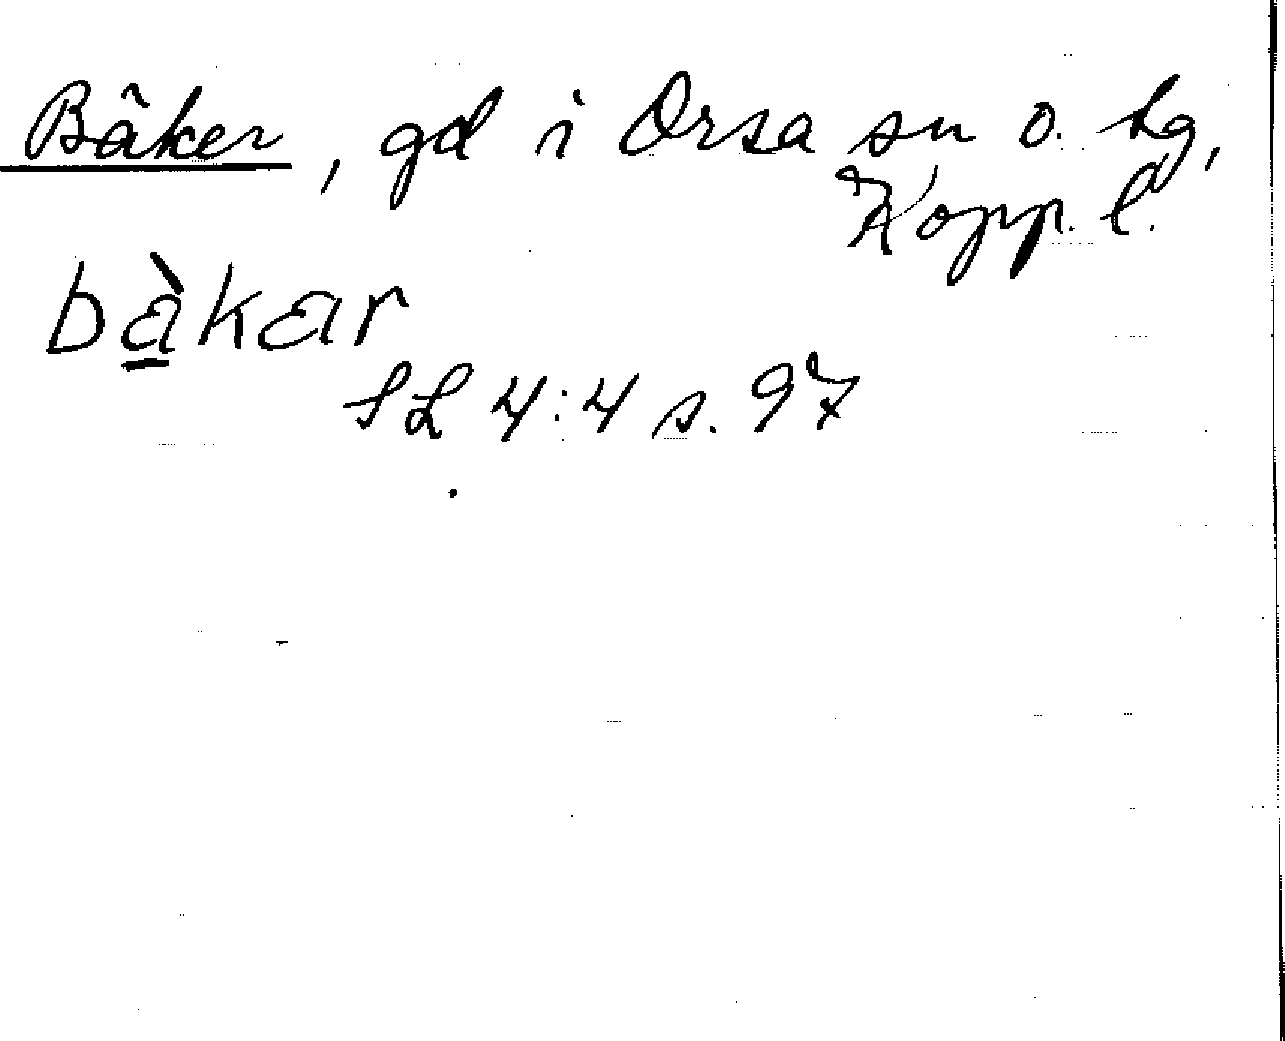 Bâker, gd i Orsa sn o. hg,
Kopp. l.
bàkar
SL 4:4 s. 97